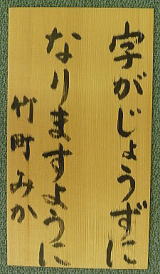 字がじょうずに
なりますように
竹町みか